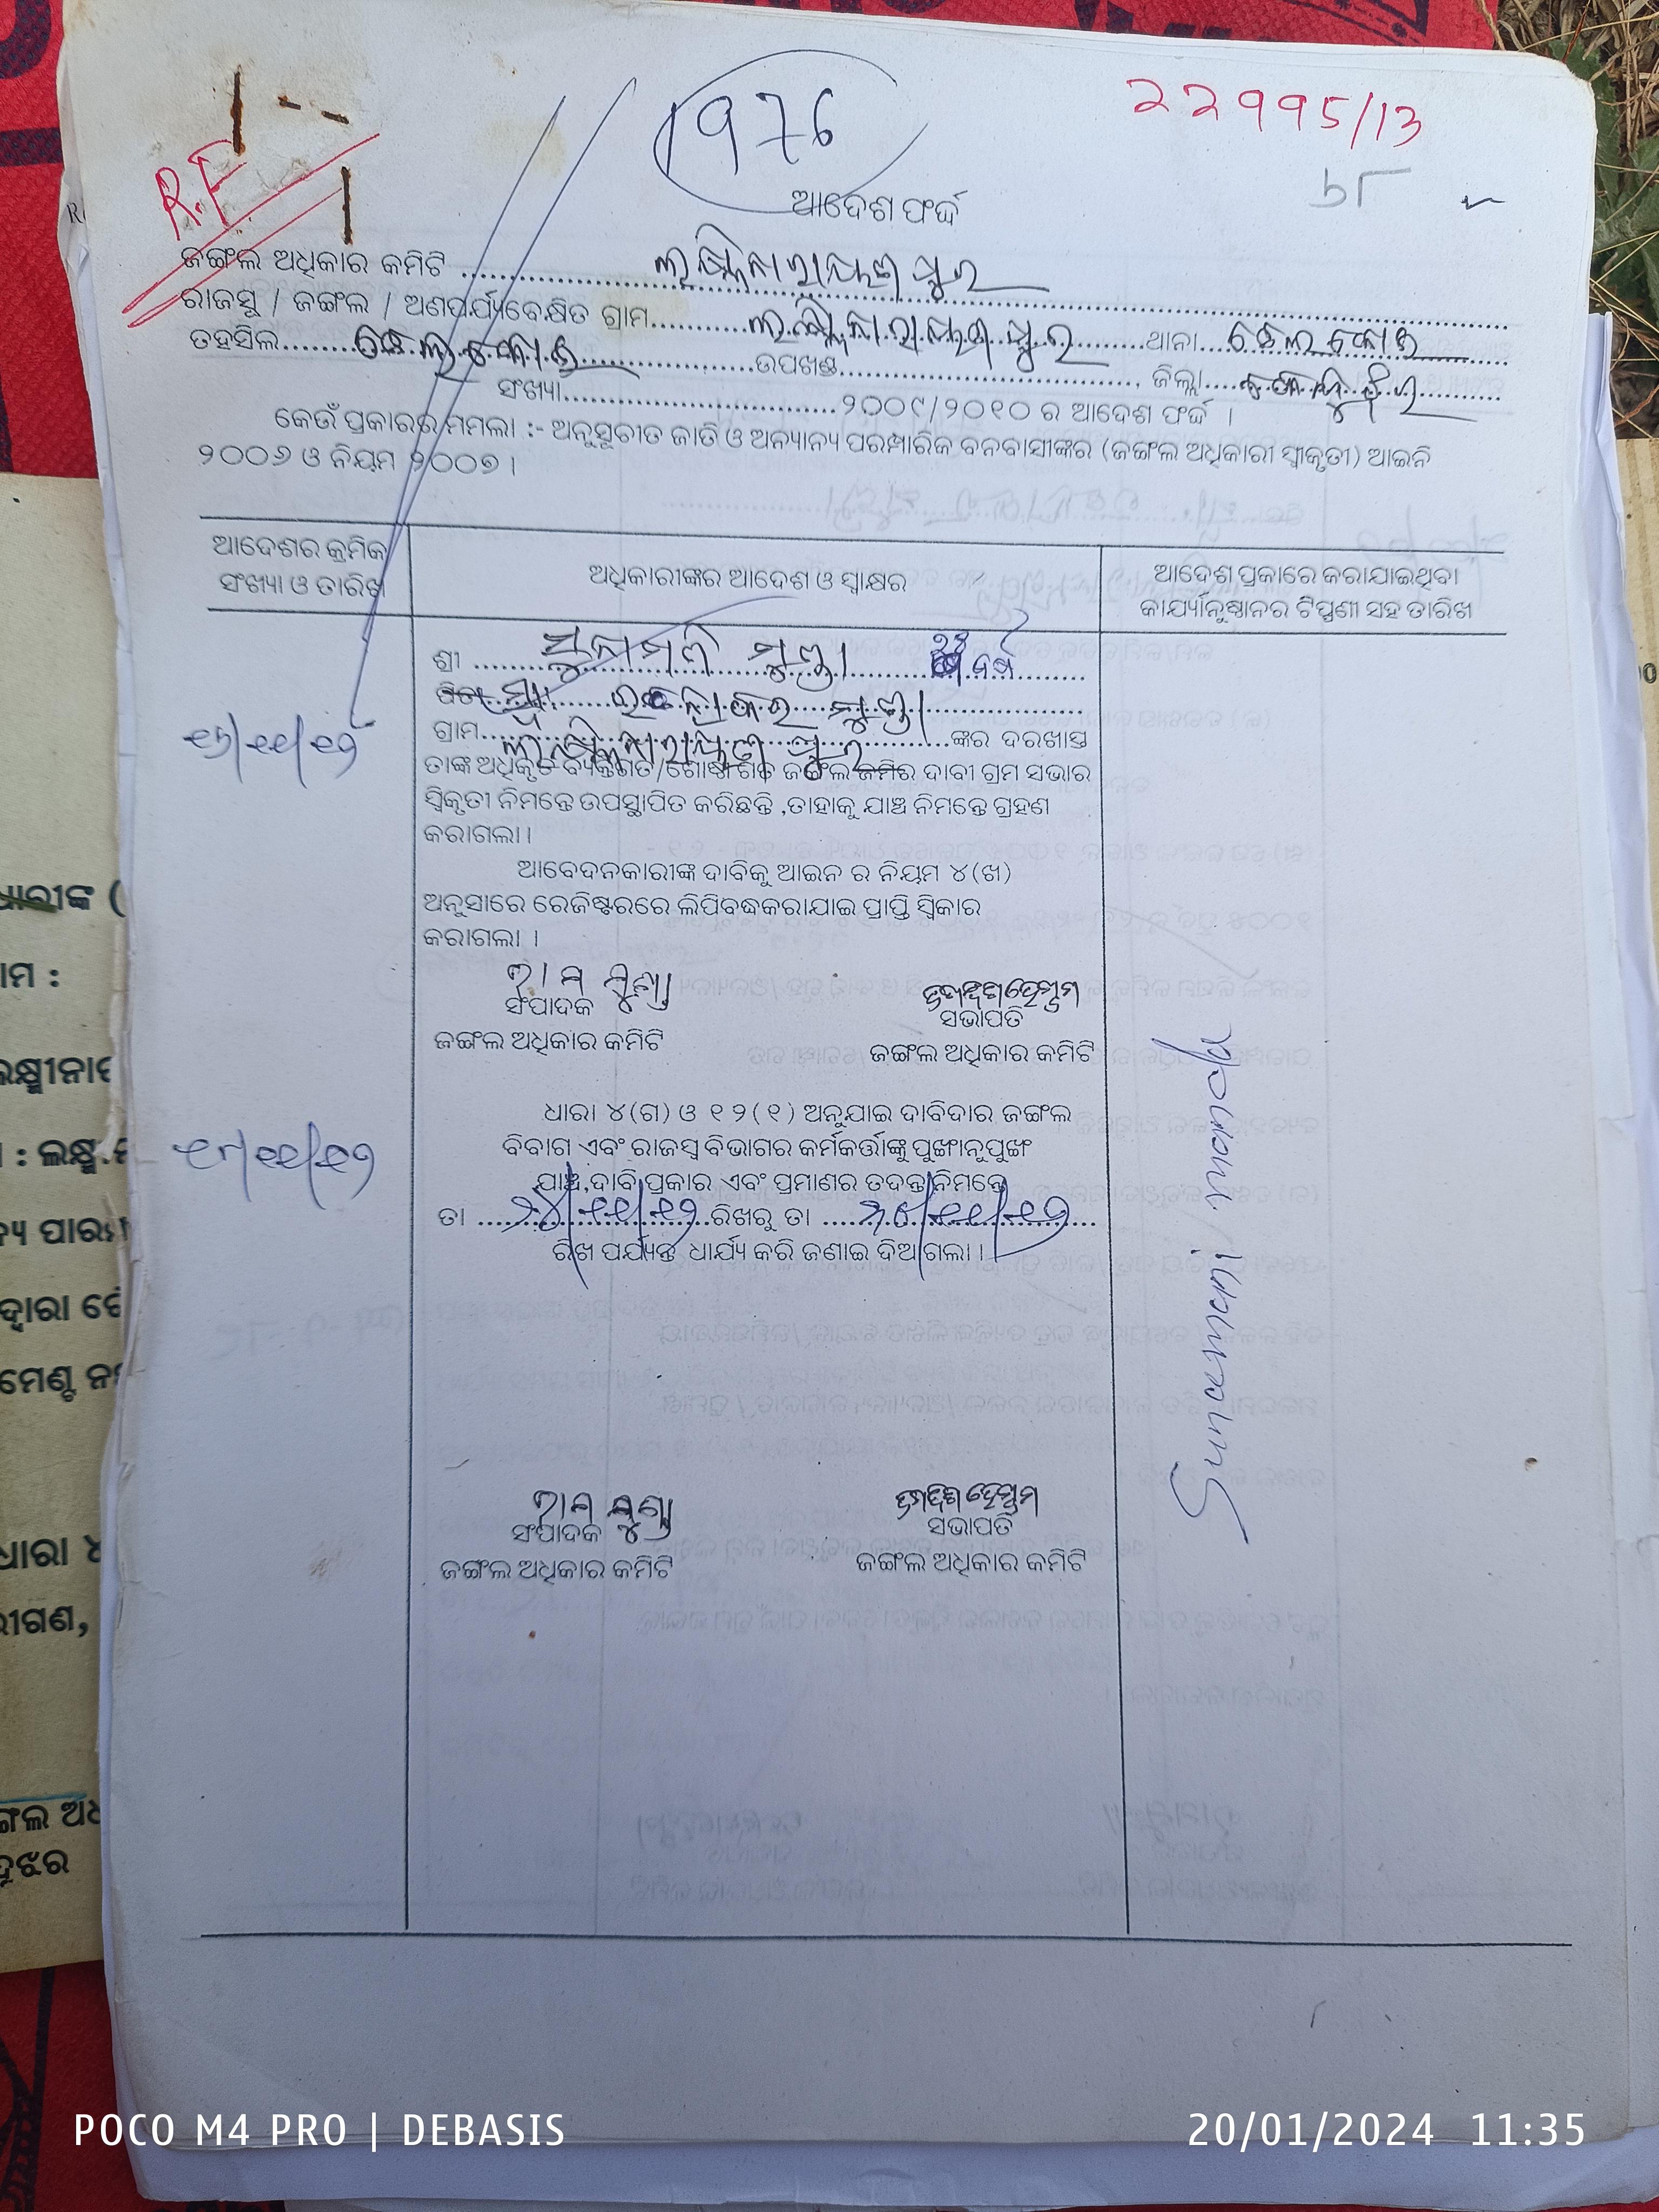 1976
22995/13
R.F
ଆଦେଶ ଫର୍ଦ୍ଦ
ଜଙ୍ଗଲ ଅଧିକାର କମିଟି .......... ଲକ୍ଷ୍ମିନାରାୟଣପୁର
ରାଜସ୍ୱ / ଜଙ୍ଗଲ / ଅଣପର୍ଯ୍ୟବେକ୍ଷିତ ଗ୍ରାମ.......... ଲକ୍ଷ୍ମିନାରାୟଣପୁର ..........ଥାନା.... ତେଲକୋଇ
ତହସିଲ........ ତେଲକୋଇ ..........ଉପଖଣ୍ଡ...................., ଜିଲ୍ଲା.... କେନ୍ଦୁଝର
ସଂଖ୍ୟା..............................୨୦୦୯/୨୦୧୦ ର ଆଦେଶ ଫର୍ଦ୍ଦ ।
କେଉଁ ପ୍ରକାରର ମମଲା :- ଅନୁସୂଚୀତ ଜାତି ଓ ଅନ୍ୟାନ୍ୟ ପରମ୍ପାରିକ ବନବାସୀଙ୍କର (ଜଙ୍ଗଲ ଅଧିକାରୀ ସ୍ୱୀକୃତୀ) ଆଇନି
୨୦୦୬ ଓ ନିୟମ ୨୦୦୭ ।
ଆଦେଶର କ୍ରମିକ
ସଂଖ୍ୟା ଓ ତାରିଖ
ଅଧିକାରୀଙ୍କର ଆଦେଶ ଓ ସ୍ୱାକ୍ଷର
ଆଦେଶ ପ୍ରକାରେ କରାଯାଇଥିବା
କାର୍ଯ୍ୟାନୁଷ୍ଠାନର ଟିପ୍ପଣୀ ସହ ତାରିଖ
ଶ୍ରୀ .......... ସୁନାମଣି ମୁଣ୍ଡା ବର୍ଷ
ପିତା ସ୍ୱା ମୁଣ୍ଡା
ଗ୍ରାମ.......... ଲକ୍ଷ୍ମିନାରାୟଣପୁର ..........ଙ୍କର ଦରଖାସ୍ତ
ତାଙ୍କ ଅଧିକୃତ ବ୍ୟକ୍ତିଗତ/ଗୋଷ୍ଠୀଗତ ଜଙ୍ଗଲ ଜମିର ଦାବୀ ଗ୍ରମ ସଭାର
ସ୍ୱିକୃତୀ ନିମନ୍ତେ ଉପସ୍ଥାପିତ କରିଛନ୍ତି ,ତାହାକୁ ଯାଞ୍ଚ ନିମନ୍ତେ ଗ୍ରହଣ
କରାଗଲା ।
ଆବେଦନକାରୀଙ୍କ ଦାବିକୁ ଆଇନ ର ନିୟମ ୪(ଖ)
ଅନୁସାରେ ରେଜିଷ୍ଟରରେ ଲିପିବଦ୍ଧକରାଯାଇ ପ୍ରାପ୍ତି ସ୍ୱିକାର
କରାଗଲା ।
ରାମ ମୁଣ୍ଡା
ସଂପାଦକ
ସଭାପତି
ଜଙ୍ଗଲ ଅଧିକାର କମିଟି
ଜଙ୍ଗଲ ଅଧିକାର କମିଟି
ଧାରା ୪(ଗ) ଓ ୧୨(୧) ଅନୁଯାଇ ଦାବିଦାର ଜଙ୍ଗଲ
ବିବାଗ ଏବଂ ରାଜସ୍ୱ ବିଭାଗର କର୍ମକର୍ତ୍ତାଙ୍କୁ ପୁଙ୍ଖାନୁପୁଙ୍ଖ
ଯାଞ୍ଚ,ଦାବି ପ୍ରକାର ଏବଂ ପ୍ରମାଣର ତଦନ୍ତ ନିମନ୍ତେ
ତା ....୨୪/୧୧/୧୨..ରିଖରୁ ତା ..............
ରିଖ ପର୍ଯ୍ୟନ୍ତ ଧାର୍ଯ୍ୟ କରି ଜଣାଇ ଦିଆଗଲା ।
Sunamani munda
ରାମ ମୁଣ୍ଡା
ସଂପାଦକ
ସଭାପତି
ଜଙ୍ଗଲ ଅଧିକାର କମିଟି
ଜଙ୍ଗଲ ଅଧିକାର କମିଟି
POCO M4 PRO | DEBASIS
20/01/2024 11:35